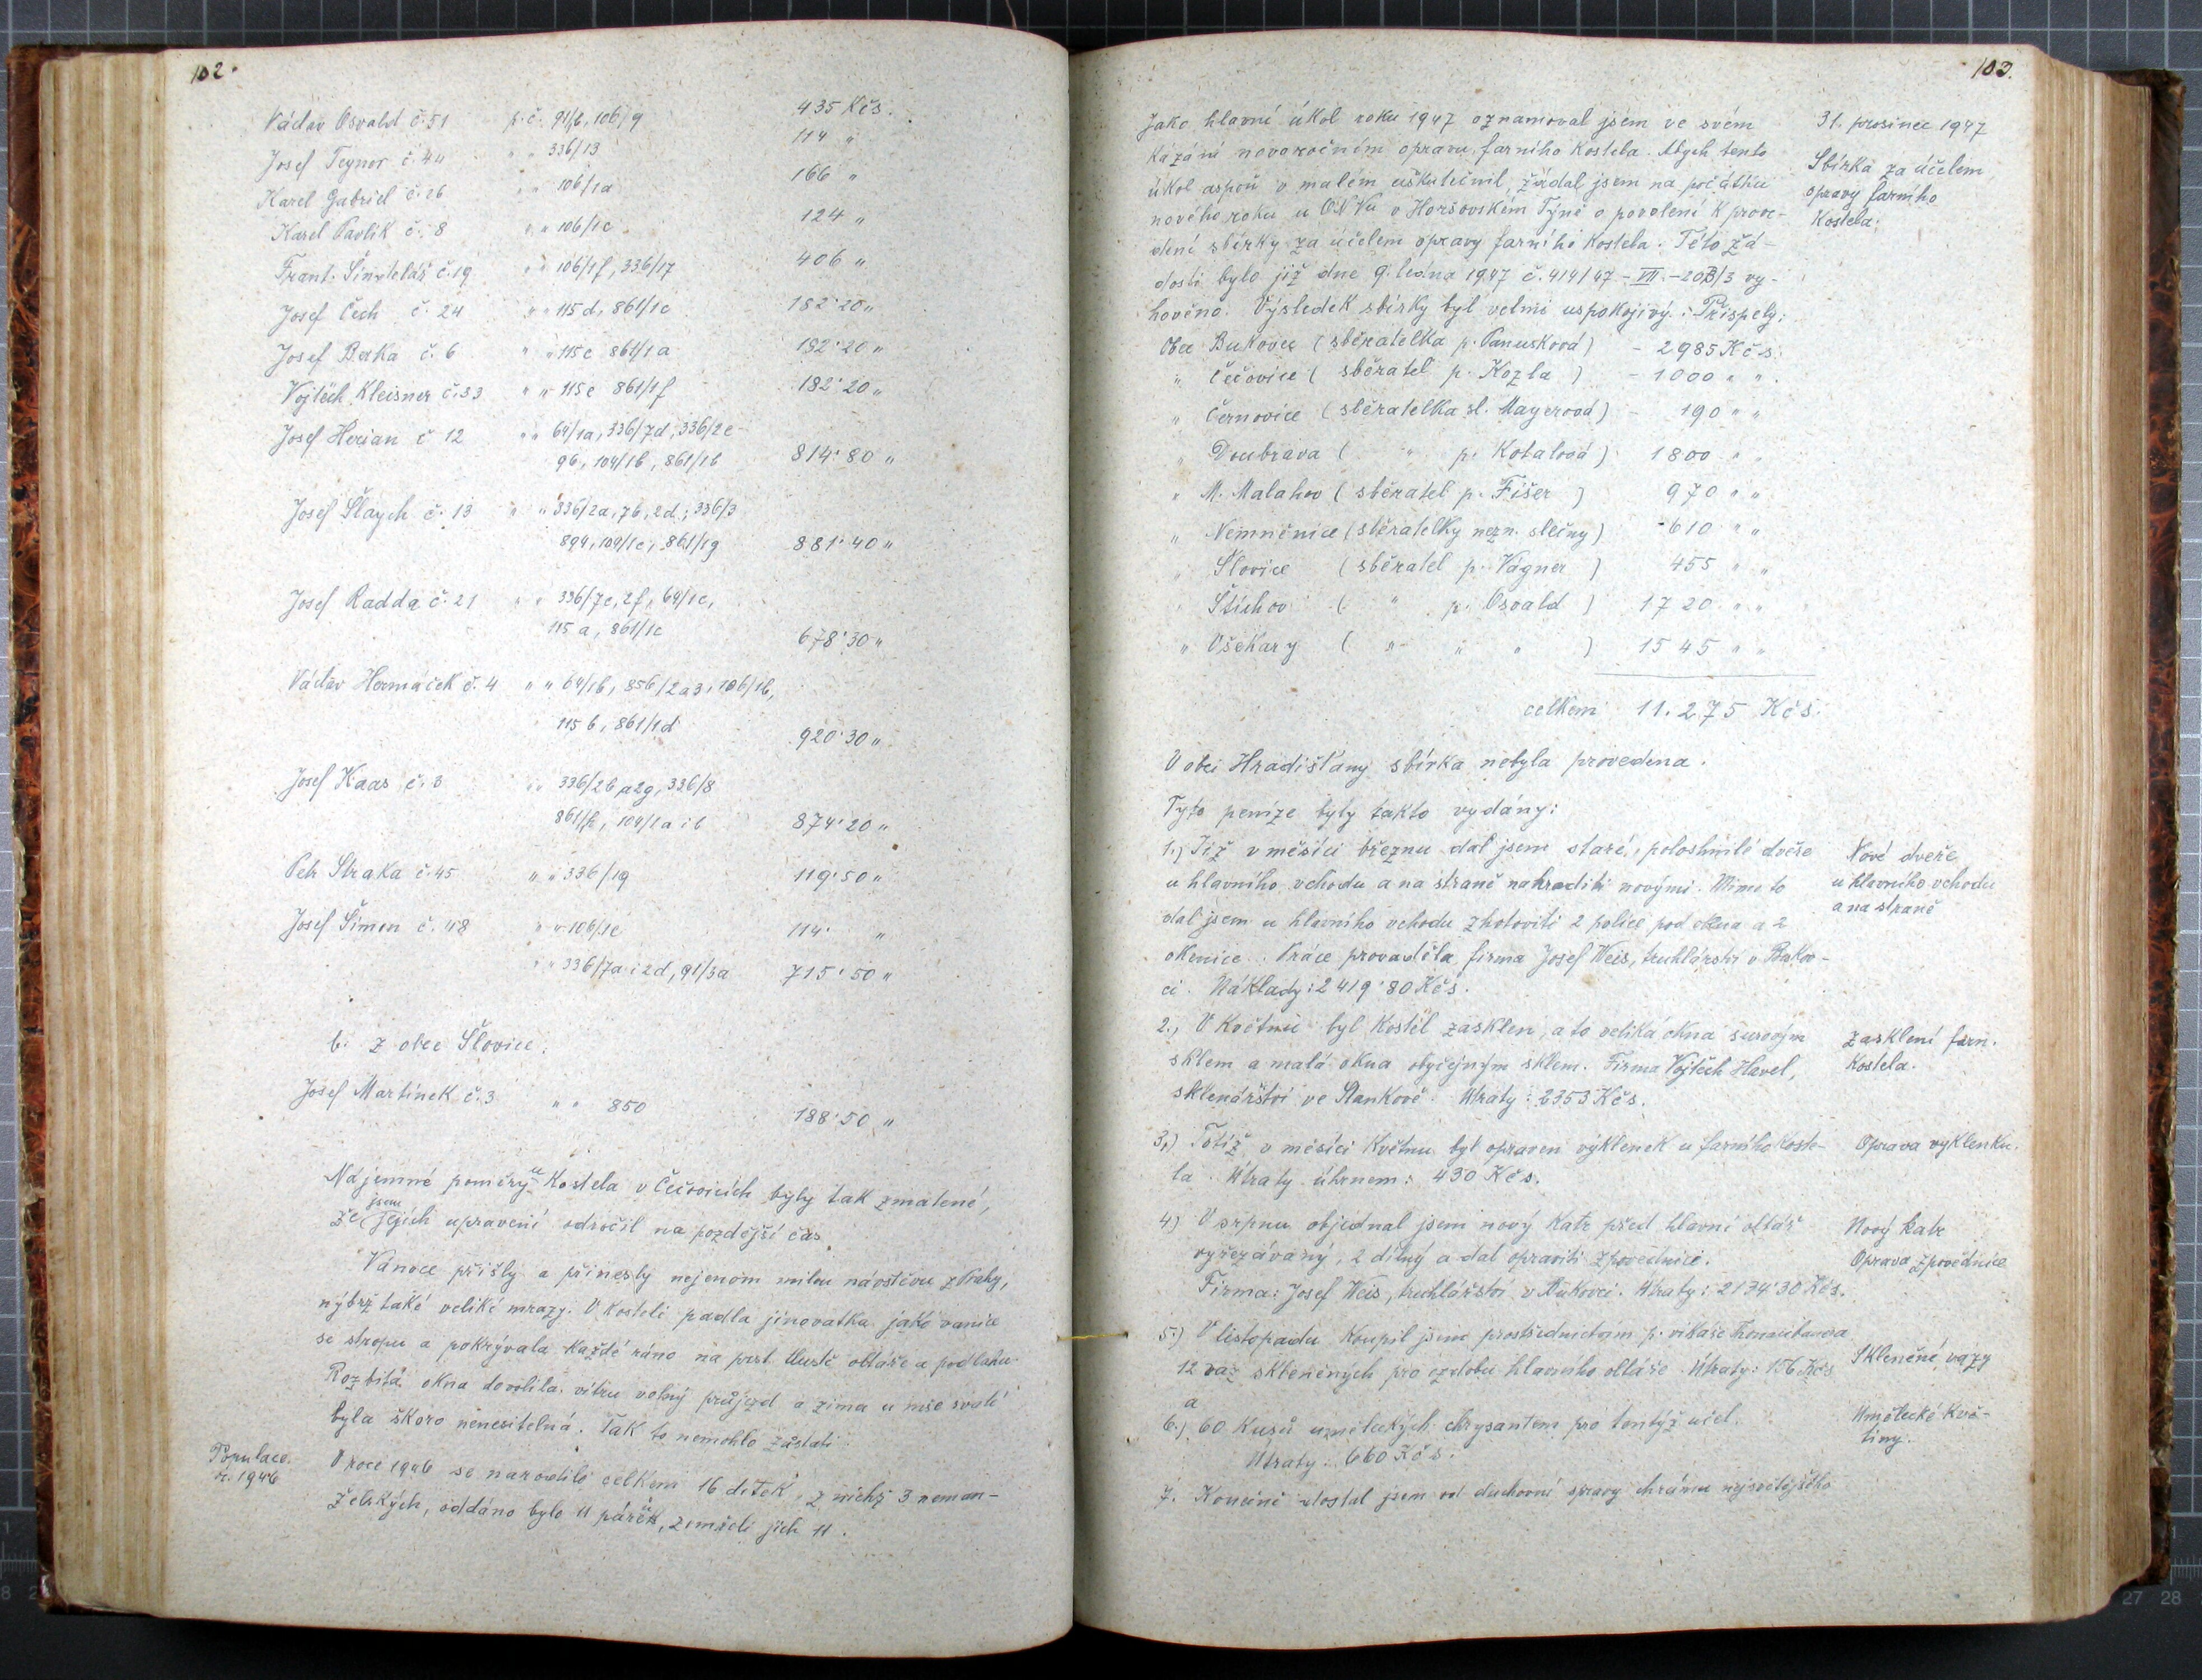 102.
Václav Osvald č. 51 p. č. 91/b, 106/g 435 Kčs.
Josef Teynor č. 44 " " 336/13 114 "
Karel Gabriel č. 26 " " 106/1a 166 "
Karel Pavlík č. 8 " " 106/1c 124 "
Frant. č. 19 " " 106/1f, 336/17 406 "
Josef Čech č. 24 " " 115 d, 861/1e 182'20 "
Josef Berka č. 6 " " 115c 861/1a 182'20 "
Vojtěch Kleisner č. 33 " " 115e 861/1f 182'20 "
Josef Herian č 12 " " 64/1a, 336/7d, 336/2e-
96, 104/1b, 861/1b 814'80 "
Josef Šlaych č. 13 " " 336/2a, 7b, 2d; 336/3
894, 104/1c, 861/1g 881'40 "
Josef Radda č. 21 " " 336/7c, 2f, 64/1c,
115 a, 861/1c 678'30 "
Václav Heřmáček č. 4 " " 64/1b, 856/2a3, 106/1b,
115 b, 861/1d 920'30 "
Josef Haas č. 3 " " 336/2b a 2g, 336/8
861/h, 104/1a i b 874'20 "
Petr Straka č. 45 " " 336/19 119'50 "
Josef Šimon č. 48 " " 106/1e 114' "
" " 336/7a i 2d, 91/3a 715'50 "
b. z obce Šlovice:
Josef Martínek č. 3 " " 850 188'50 "
Nájemné poměry u kostela v Čečovicích byly tak zmatené,
že jsem jejich upravení odročil na pozdější čas.
Vánoce přišly a přinesly nejenom milou návštěvu z Prahy,
nýbrž také veliké mrazy. V kostele padla jinovatka jako vanice
se stropu a pokrývala každé ráno na prst tlustě oltáře a podlahu.
Rozbitá okna dovolila větru volný průjezd a zima u mše svaté
byla skoro nenesitelná. Tak to nemohlo zůstati
Populace r. 1946
V roce 1946 se narodilo celkem 16 dítek, z nichž 3 neman-
želských, oddáno bylo 11 párů, zemřeli jich 11.
103.
Jako hlavní úkol roku 1947 oznamoval jsem ve svém
kázání novoročním opravu farního kostela. Abych tento
úkol aspoň v malém uskutečnil, žádal jsem na počátku
nového roku u ONVu v Horšovském Týně o povolení k prove-
dení sbírky za účelem opravy farního kostela. Této žá-
dosti bylo již dne 9. ledna 1947 č. 414/47 - VII. - 20B/3 vy-
hověno. Výsledek sbírky byl velmi uspokojivý: Přispěly:
31. prosinec 1947
Sbírka za účelem
opravy farního
kostela:
Obec Bukovec (sběratelka p. Panusková) - 2985 Kčs.
" Čečovice (sběratel p. Kozla) - 1000 " ".
" Černovice (sběratelka sl. Mayerová) - 190 " "
" Doubrava ( " p. Kotalová) 1800 " "
" M. Malahov (sběratel p. Fišer) 970 " "
" Němněnice (sběratelky nezn. slečny) - 610 " "
" Šlovice (sběratel p. Vágner) 455 " "
" Štichov ( " p. Osvald) 1720 " "
" Všekary ( " " " ) 1545 " "
celkem 11.275 Kčs.
V obci Hradišťany sbírka nebyla provedena.
Tyto peníze byly takto vydány:
1.) Již v měsíci březnu dal jsem staré, poloshnilé dveře
u hlavního vchodu a na straně nahraditi novými. Mimo to
dal jsem u hlavního vchodu zhotoviti 2 police pod okna a 2
okenice. Práce prováděla firma Josef Weis, truhlářství v Bukov-
ci. Náklady: 2419'80 Kčs.
Nové dveře
u hlavního vchodu
a na straně
2., V květnu byl kostel zasklen, a to veliká okna surovým
sklem a malá okna obyčejným sklem. Firma Vojtěch Havel,
sklenářství ve Stankově. Útraty: 2353 Kčs.
Zasklení farn.
kostela.
3.) Totiž v měsíci květnu byl opraven výklenek u farního koste-
la. Útraty úhrnem: 430 Kčs.
Oprava vyklenku.
4) V srpnu objednal jsem nový katr před hlavní oltář
vyřezávaný, 2 dílný a dal opraviti zpovědnici.
Firma: Josef Weis, truhlářství v Bukovci. Útraty: 2134'30 Kčs.
Nový katr
Oprava zpovědnice
5.) V listopadu koupil jsem prostřednictvím p. vikáře
12 váz skleněných pro ozdobu hlavního oltáře. Útraty: 156 Kčs
a
Skleněné vázy
6.) 60 kusů uměleckých chrysantem pro tentýž účel.
Útraty: 660 Kčs.
Umělecké kvě-
tiny.
7. Konečně dostal jsem od duchovní správy chrámu nejsvětějšího